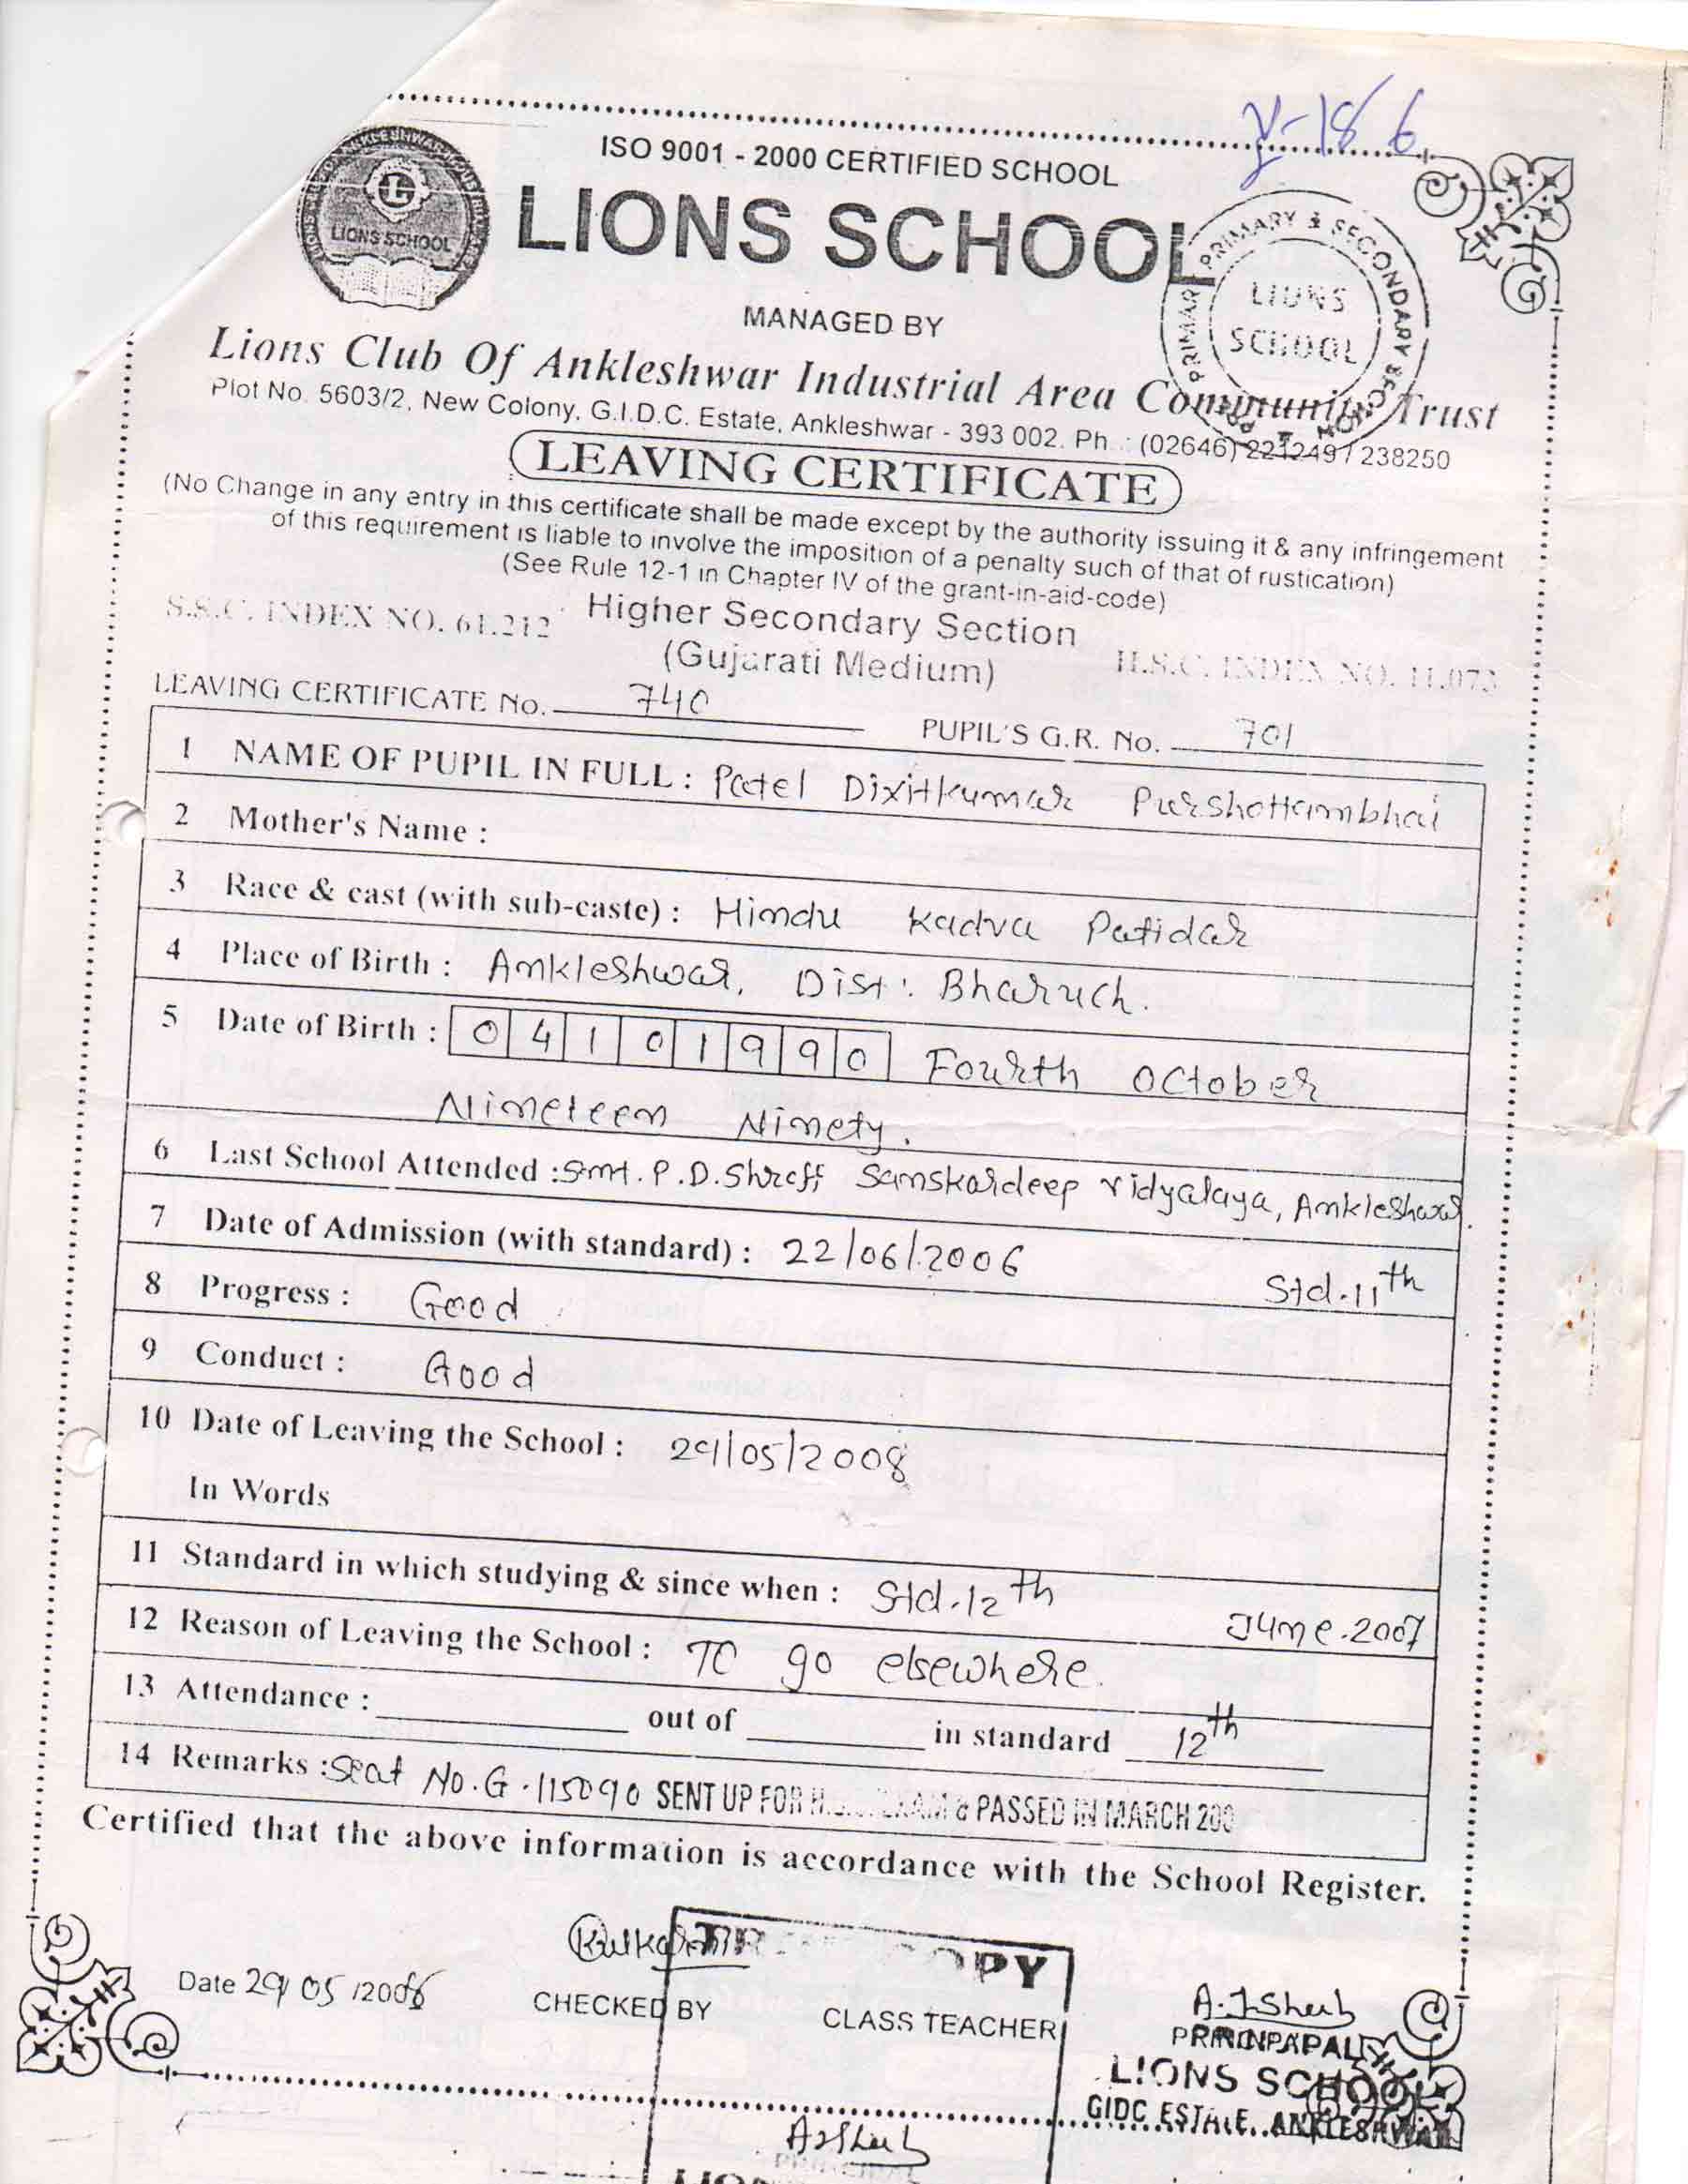 ISO 9001 - 2000 CERTIFIED SCHOOL
LIONS SCHOOL
LIONS SCHOOL
PRIMARY & SECONDARY
LIONS
SCHOOL
MANAGED BY
Lions Club Of Ankleshwar Industrial Area Community Trust
Plot No. 5603/2, New Colony, G.I.D.C. Estate, Ankleshwar - 393 002. Ph. : (02646) 221249 / 238250
LEAVING CERTIFICATE
(No Change in any entry in this certificate shall be made except by the authority issuing it & any infringement
of this requirement is liable to involve the imposition of a penalty such of that of rustication)
(See Rule 12-1 in Chapter IV of the grant-in-aid-code)
S.S.C. INDEX NO. 61.212 Higher Secondary Section
(Gujarati Medium) H.S.C. INDEX NO. 11.073
LEAVING CERTIFICATE No. 740 PUPIL'S G.R. No. 701
1 NAME OF PUPIL IN FULL : Patel Dixitkumar Purshottambhai
2 Mother's Name :
3 Race & cast (with sub-caste) : Hindu Kadva Patidar
4 Place of Birth : Ankleshwar, Dist : Bharuch.
5 Date of Birth : 0 4 1 0 1 9 9 0 Fourth October
Nineteen Ninety.
6 Last School Attended : Smt. P.D. Shroff Sanskardeep Vidyalaya, Ankleshwar.
7 Date of Admission (with standard) : 22/06/2006 Std. 11th
8 Progress : Good
9 Conduct : Good
10 Date of Leaving the School : 29/05/2008
In Words
11 Standard in which studying & since when : Std. 12th June. 2007
12 Reason of Leaving the School : To go elsewhere.
13 Attendance : out of in standard 12th
14 Remarks : Seat No. G. 115090 SENT UP FOR H.S.C. EXAM & PASSED IN MARCH 200
Certified that the above information is accordance with the School Register.
Kulkarni TRUE COPY
Date 29/05/2008 CHECKED BY CLASS TEACHER
PRINCIPAL
LIONS SCHOOL
GIDC ESTATE, ANKLESHWAR